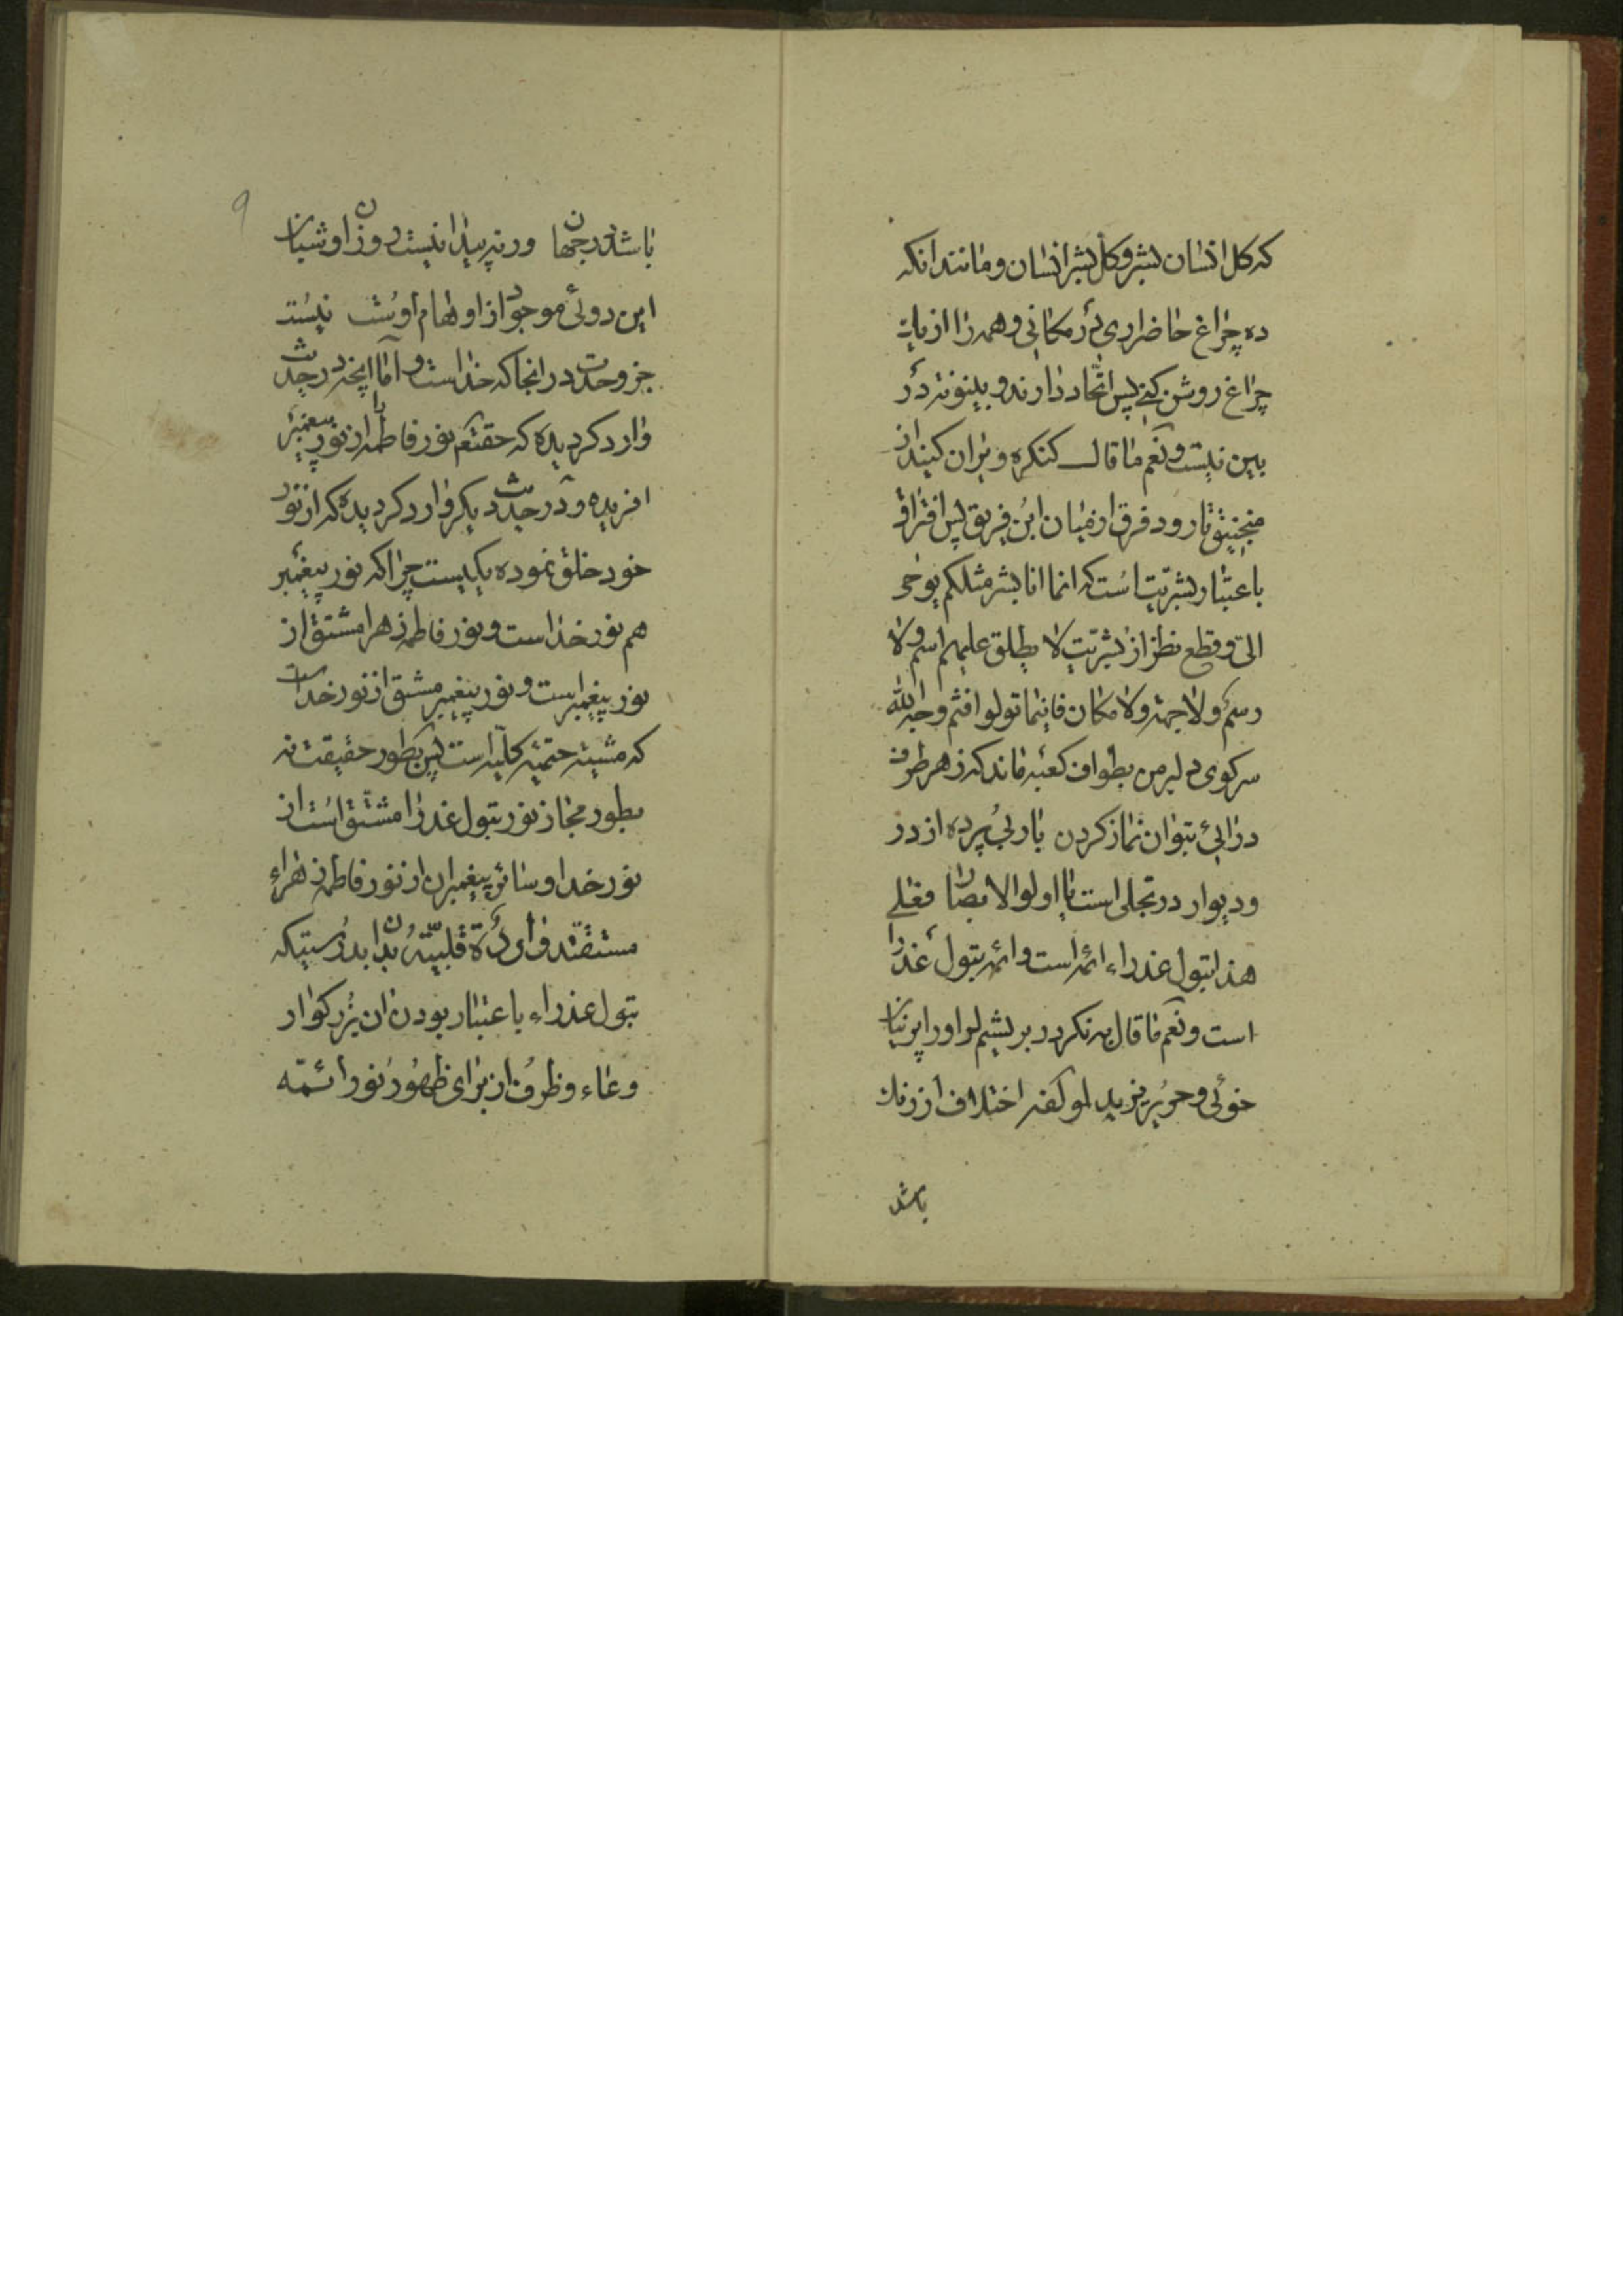 که کل انسان بشر و کل بشر انسان و مانند انکه
ده چراغ حاضر اری در مکانی و همه را از یک
چراغ روشن کنی پس اتحاد دارند و بینونة در
بین نیست و نعم ما قال کنکره ویران کنید از
منجنیق تا رود فرق از میان این فریق پس افتراق
باعتبار بشریت است که انما انا بشر مثلکم یوحی
الی و قطع نظر از بشریت لا یطلق علیهم اسم ولا
رسم ولا جهة ولا مکان فاینما تولوا فثم وجه الله
سر کوی دلبر من بطواف کعبه ماند که ز هر طرف
درائی بتوان نماز کردن یار بی پرده از در
و دیوار در تجلی است یا اولوا الابصار فعلی
هذا بتول عذراء ائمه است و ائمه بتول عذرا
است و نعم ما قال سه نکردد بریشم ار او را پرنیان
خوئی و حریر و پرند کفر اختلاف از رنک
باشد
۹
باشد در جهان ورنه پیدا نیست روز او شبان
این دوئی موجود از اوهام اوست نیست
جز وحدت در انجا که خداست و اما انچه در حدیث
وارد کردیده که حقتعم نور فاطمه را از نور پیغمبر
افریده و در حدیث دیکر وارد کردیده که از نور
خود خلق نموده یکیست چرا که نور پیغمبر
هم نور خدا است و نور فاطمه زهرا مشتق از
نور پیغمبر است و نور پیغمبر مشتق از نور خداست
که مشیة حتمیه کلیه است پس بطور حقیقت نه
بطور مجاز نور بتول عذرا مشتق است از
نور خدا و سائر پیغمبران از نور فاطمه زهراء
مستفتند قلبیته بدان بدرستیکه
بتول عذراء باعتبار بودن ان بزرکوار
وعاء و ظرف از برای ظهور نور ائمه